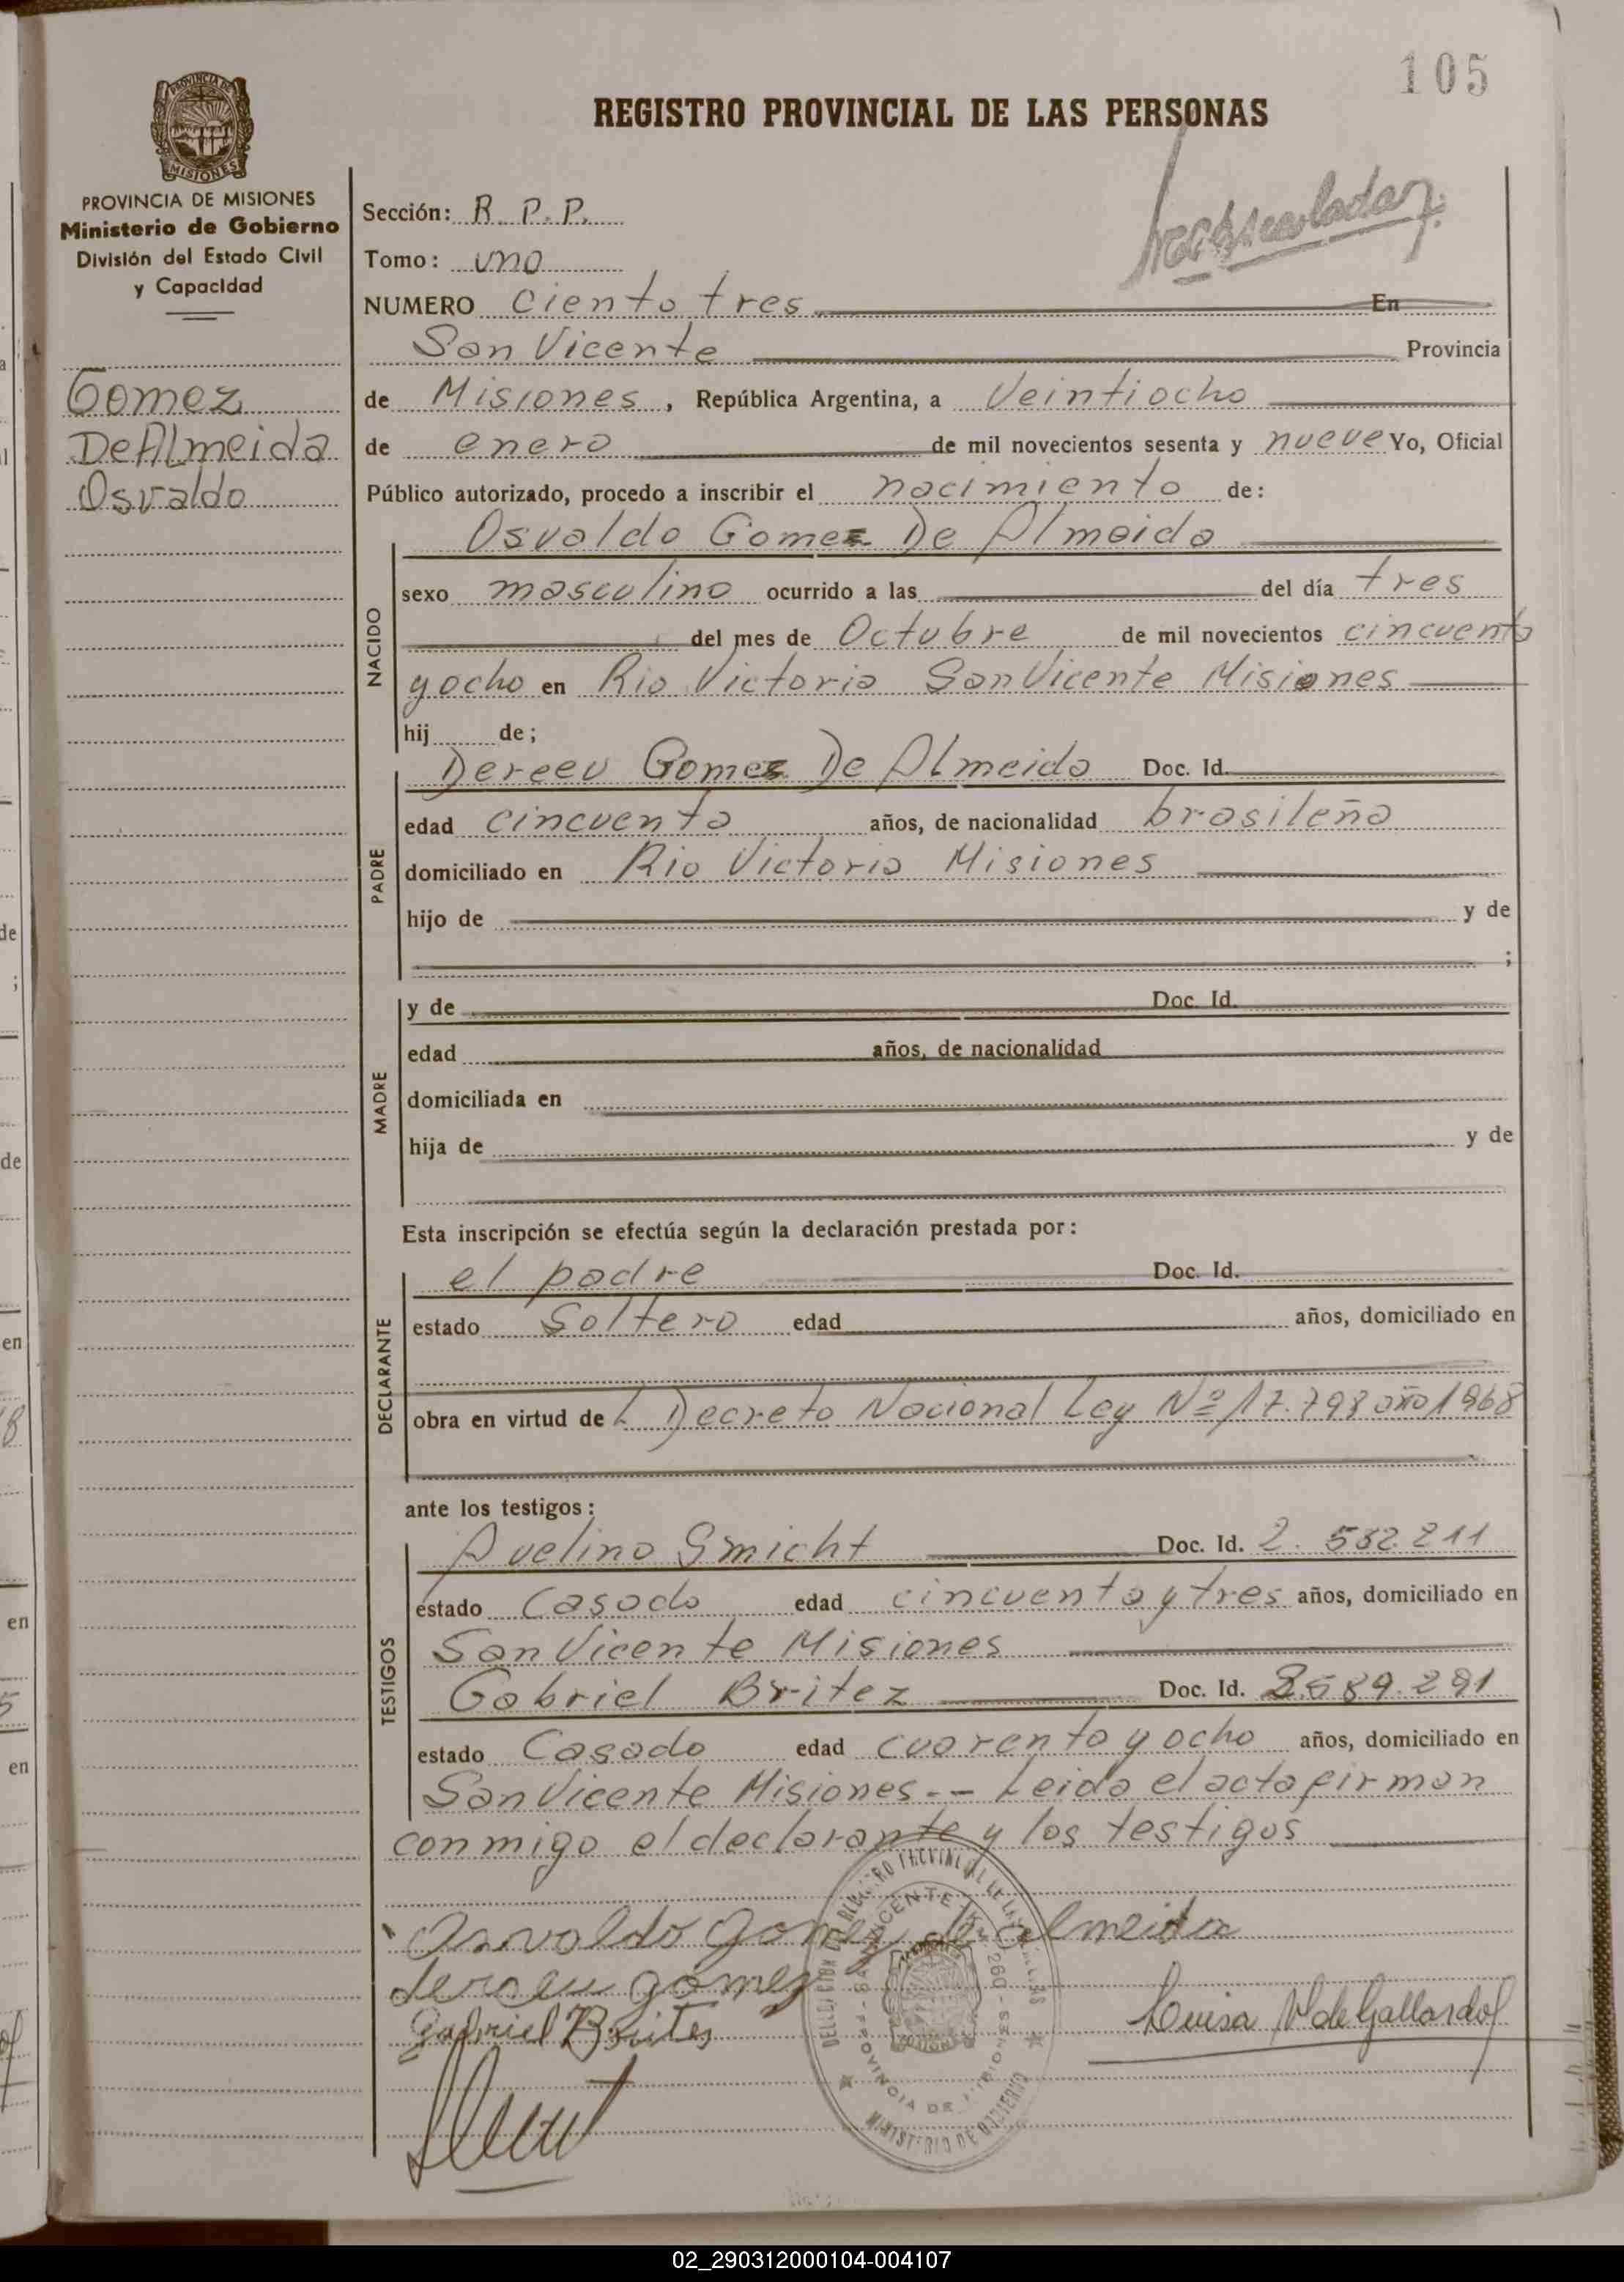 105
REGISTRO PROVINCIAL DE LAS PERSONAS
PROVINCIA DE MISIONES
Ministerio de Gobierno
División del Estado Civil
y Capacidad
Gomez
De Almeida
Osvaldo
Sección: R. P. P.
Tomo: uno
NUMERO ciento tres En
San Vicente Provincia
de Misiones, República Argentina, a Veintiocho
de enero de mil novecientos sesenta y nueve Yo, Oficial
Público autorizado, procedo a inscribir el nacimiento de:
NACIDO
Osvaldo Gomez De Almeida
sexo masculino ocurrido a las del día tres
del mes de Octubre de mil novecientos cincuenta
y ocho en Rio Victoria San Vicente Misiones
hij de;
PADRE
Dereeu Gomez De Almeida Doc. Id.
edad cincuenta años, de nacionalidad brasileña
domiciliado en Rio Victoria Misiones
hijo de y de
;
MADRE
y de Doc. Id.
edad años, de nacionalidad
domiciliada en
hija de y de
Esta inscripción se efectúa según la declaración prestada por:
DECLARANTE
el padre Doc. Id.
estado Soltero edad años, domiciliado en
obra en virtud de L Decreto Nacional Ley Nº 17.798 año 1968
ante los testigos:
TESTIGOS
Avelino Smicht Doc. Id. 2. 582.211
estado Casado edad cincuenta y tres años, domiciliado en
San Vicente Misiones
Gabriel Britez Doc. Id. 2.589.291
estado Casado edad cuarenta y ocho años, domiciliado en
San Vicente Misiones.-- Leida el acta firman
conmigo el declarante y los testigos
Osvaldo Gomez de Almeida
dereeu gomez
Gabriel Britez
Luisa V de Gallardo
02_290312000104-004107